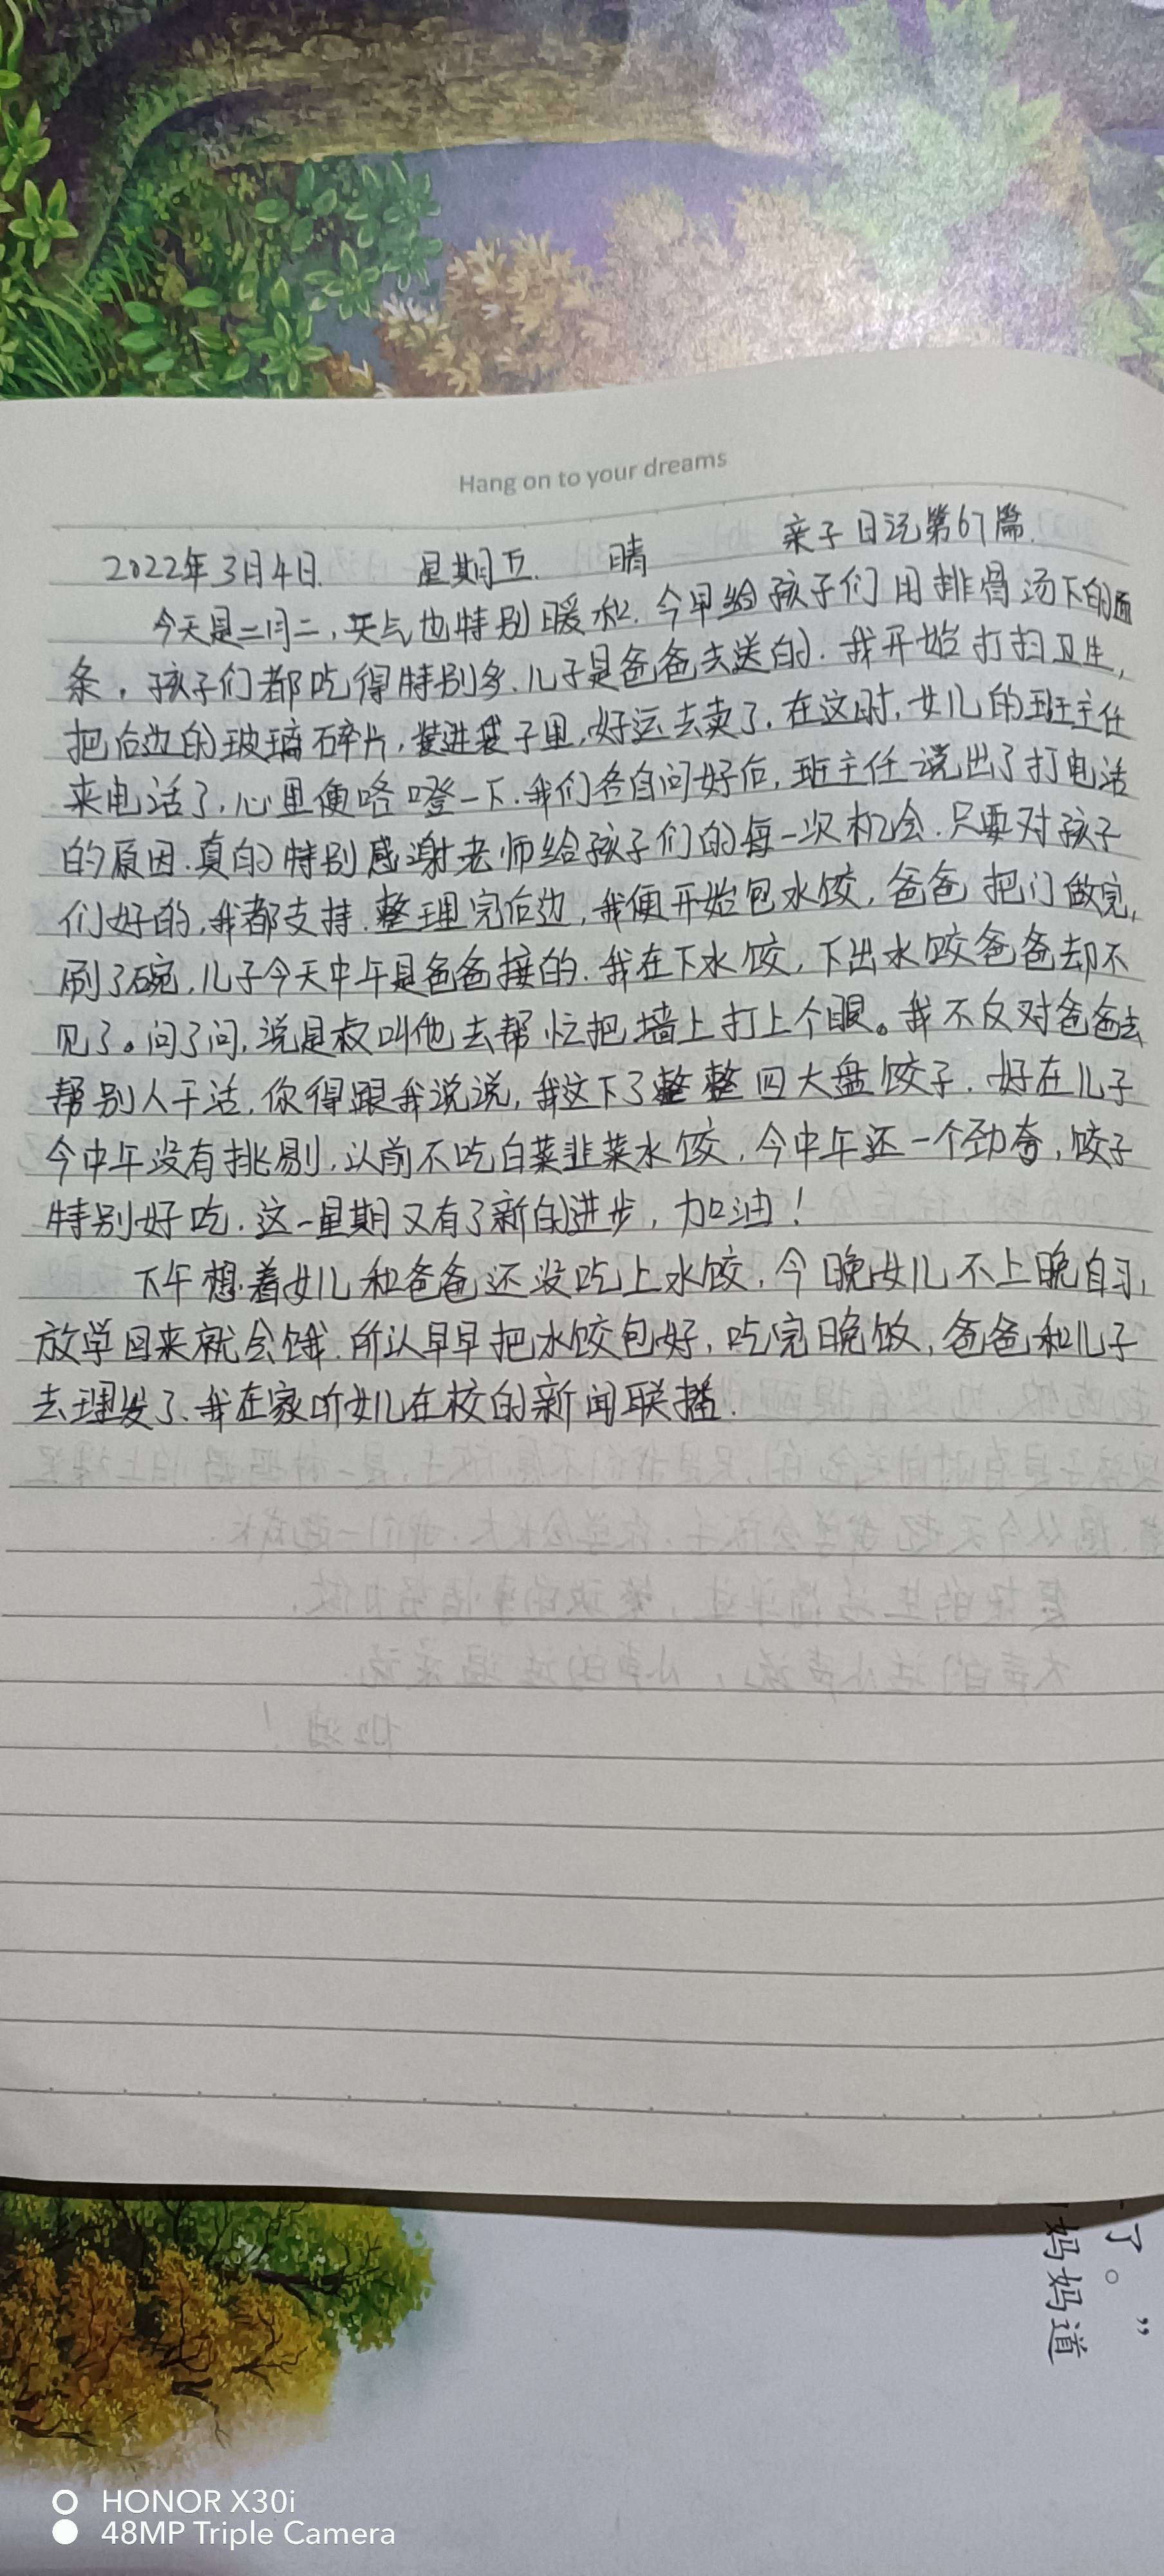 Hang on to your dreams
2022年3月4日. 星期五. 晴 亲子日记第67篇.
今天是二月二,天气也特别暖和.今早给孩子们用排骨汤下的面
条,孩子们都吃得特别多.儿子是爸爸去送的.我开始打扫卫生,
把后边的玻璃碎片,装进袋子里,好运去卖了.在这时,女儿的班主任
来电话了,心里便咯噔一下.我们各自问好后,班主任说出了打电话
的原因.真的特别感谢老师给孩子们的每一次机会.只要对孩子
们好的,我都支持.整理完后边,我便开始包水饺,爸爸把门做完,
刷了碗,儿子今天中午是爸爸接的.我在下水饺,下出水饺爸爸却不
见了。问了问,说是叔叫他去帮忙把墙上打上个眼。我不反对爸爸去
帮别人干活,你得跟我说说,我这下了整整四大盘饺子.好在儿子
今中午没有挑剔,以前不吃白菜韭菜水饺,今中午还一个劲夸,饺子
特别好吃.这一星期又有了新的进步,加油!
下午想着女儿和爸爸还没吃上水饺,今晚女儿不上晚自习,
放学回来就会饿.所以早早把水饺包好,吃完晚饭,爸爸和儿子
去理发了、我在家听女儿在校的新闻联播.
了。”
妈妈道
HONOR X30i
48MP Triple Camera